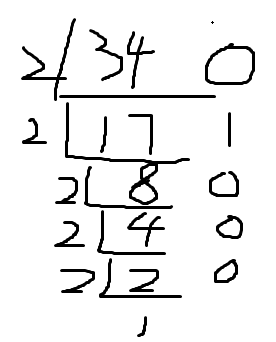 2 34 0
2 17 1
2 8 0
2 4 0
2 2 0
1